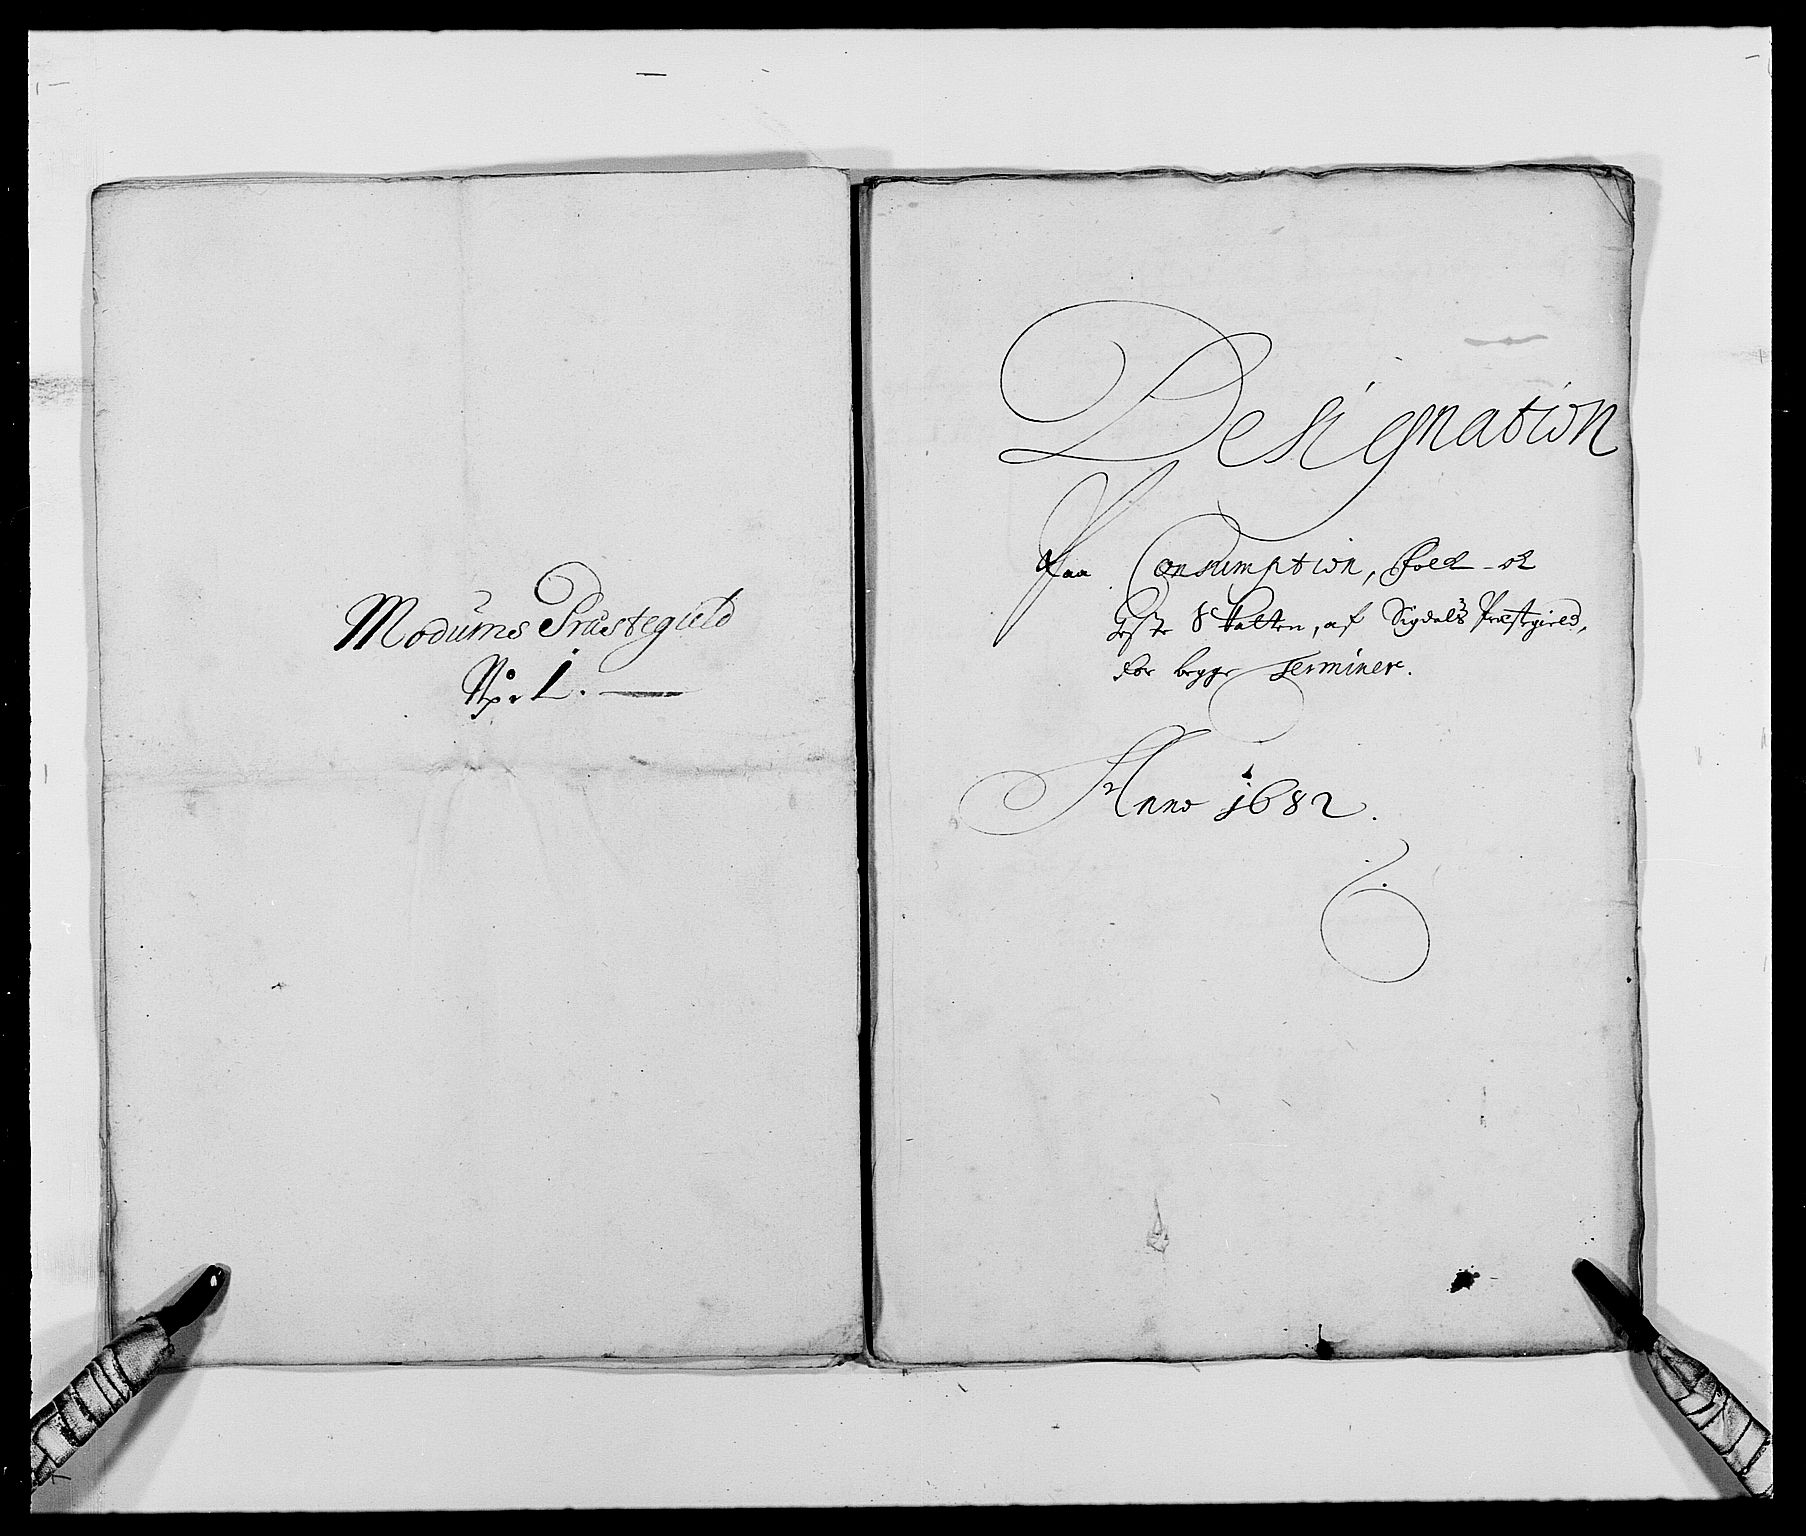 Modums Præstegield
No. 1.
Designation
Paa Consumption, Folck- oc
Heste Skatten, af Sigdals Præstgield,
for begge Terminer.
Anno 1682.